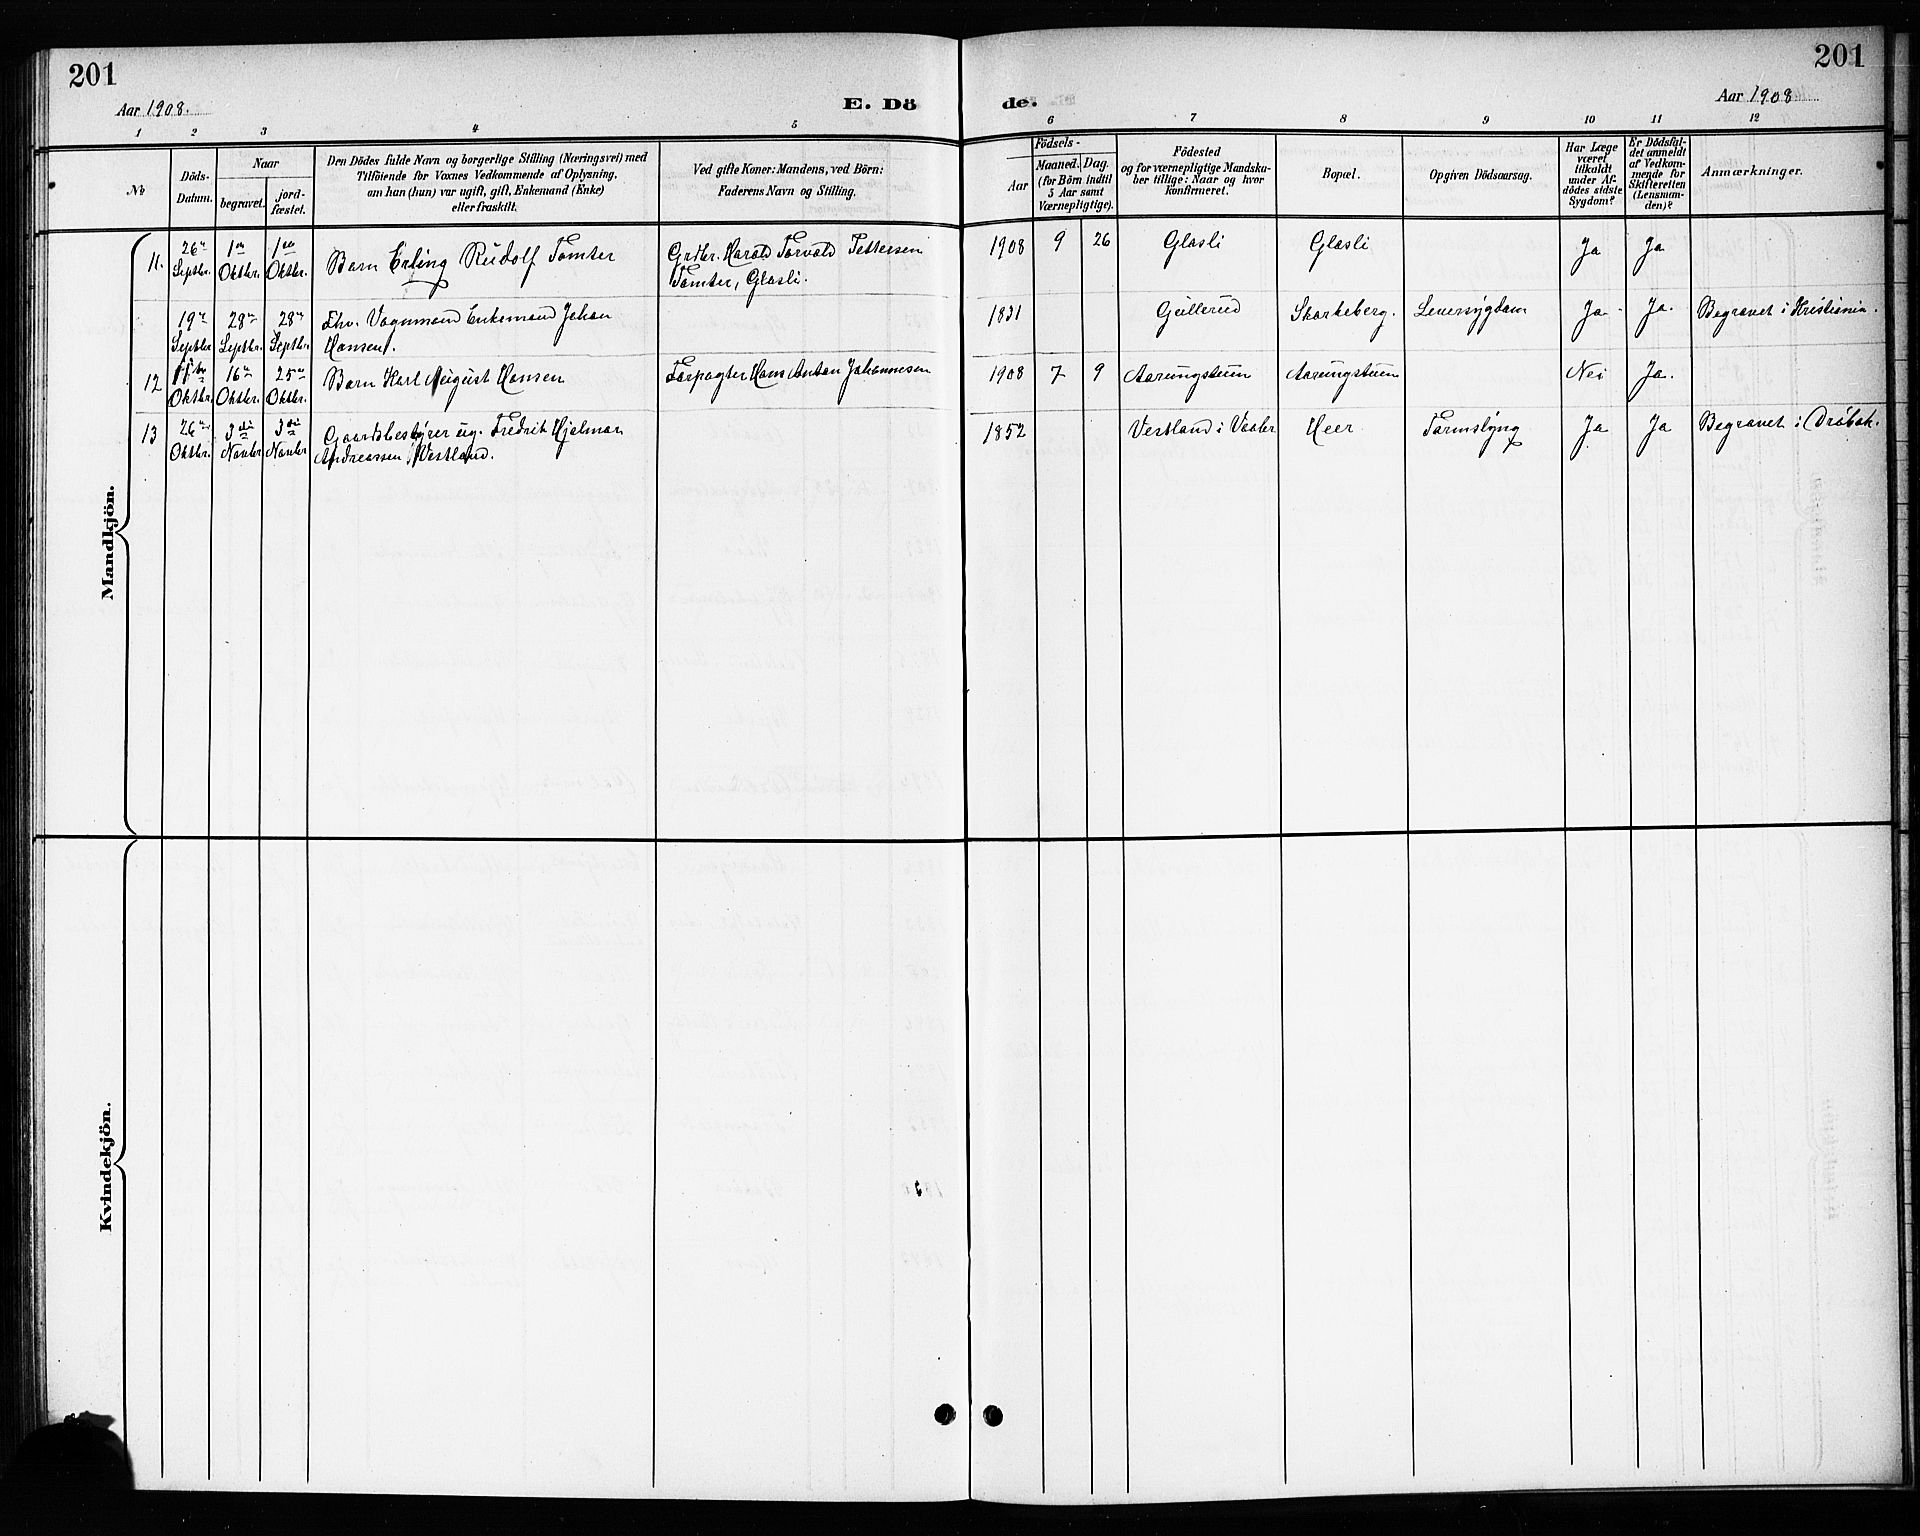 201
201
Aar 1908.
E. Dö
de.
Aar 1908
1 2 3 4 5 6 7 8 9 10 11 12
No
Döds-
Datum.
Naar
begravet.
jord-
fæstet.
Den Dödes fulde Navn og borgerlige Stilling (Næringsvei) med
Tilföiende for Voxnes Vedkommende af Oplysning,
om han (hun) var ugift, gift, Enkemand (Enke)
eller fraskilt.
Ved gifte Koner: Mandens, ved Börn:
Faderens Navn og Stilling.
Födsels-
Aar
Maaned. Dag.
(for Börn indtil
5 Aar samt
Værnepligtige).
Födested
og for værnepligtige Mandska-
ber tillige: Naar og hvor
konfirmeret.
Bopæl.
Opgiven Dödsaarsag.
Har Læge
været
tilkaldt
under Af-
dödes sidste
Sygdom?
Er Dödsfal-
det anmeldt
af Vedkom-
mende for
Skifteretten
(Lensman-
den)?
Anmærkninger.
Mandkjön.
11. 26 Septbr. 1 Oktbr. 1 Oktbr. Barn Erling Rudolf Tomter Grdbr. Harald Torvald Pettersen 1908 9 26 Glasli Glasli Ja Ja
Tomter, Glasli.
19 Septbr 28 Septbr. 28 Septbr. Fhv. Vognmand Enkemand Johan 1831 Gullerud Skorkeberg. Leversygdom Ja Ja. Begravet i Kristiania.
Hansen.
12 11 Oktbr. 16 Oktbr. 25 Oktbr. Barn Karl August Hansen Forpagter Hans Anton Johannesen 1908 7 9 Aarungstuen Aarungstuen Nei Ja.
13 26 Oktbr. 3 Novbr 3 Novbr Gaardsbestyrer ug. Fredrik Hjalmar 1852 Vestland i Vaaler Heer Tarmslyng Ja Ja Begravet i Dröbak.
Andreassen Vestland.
Kvindekjön.